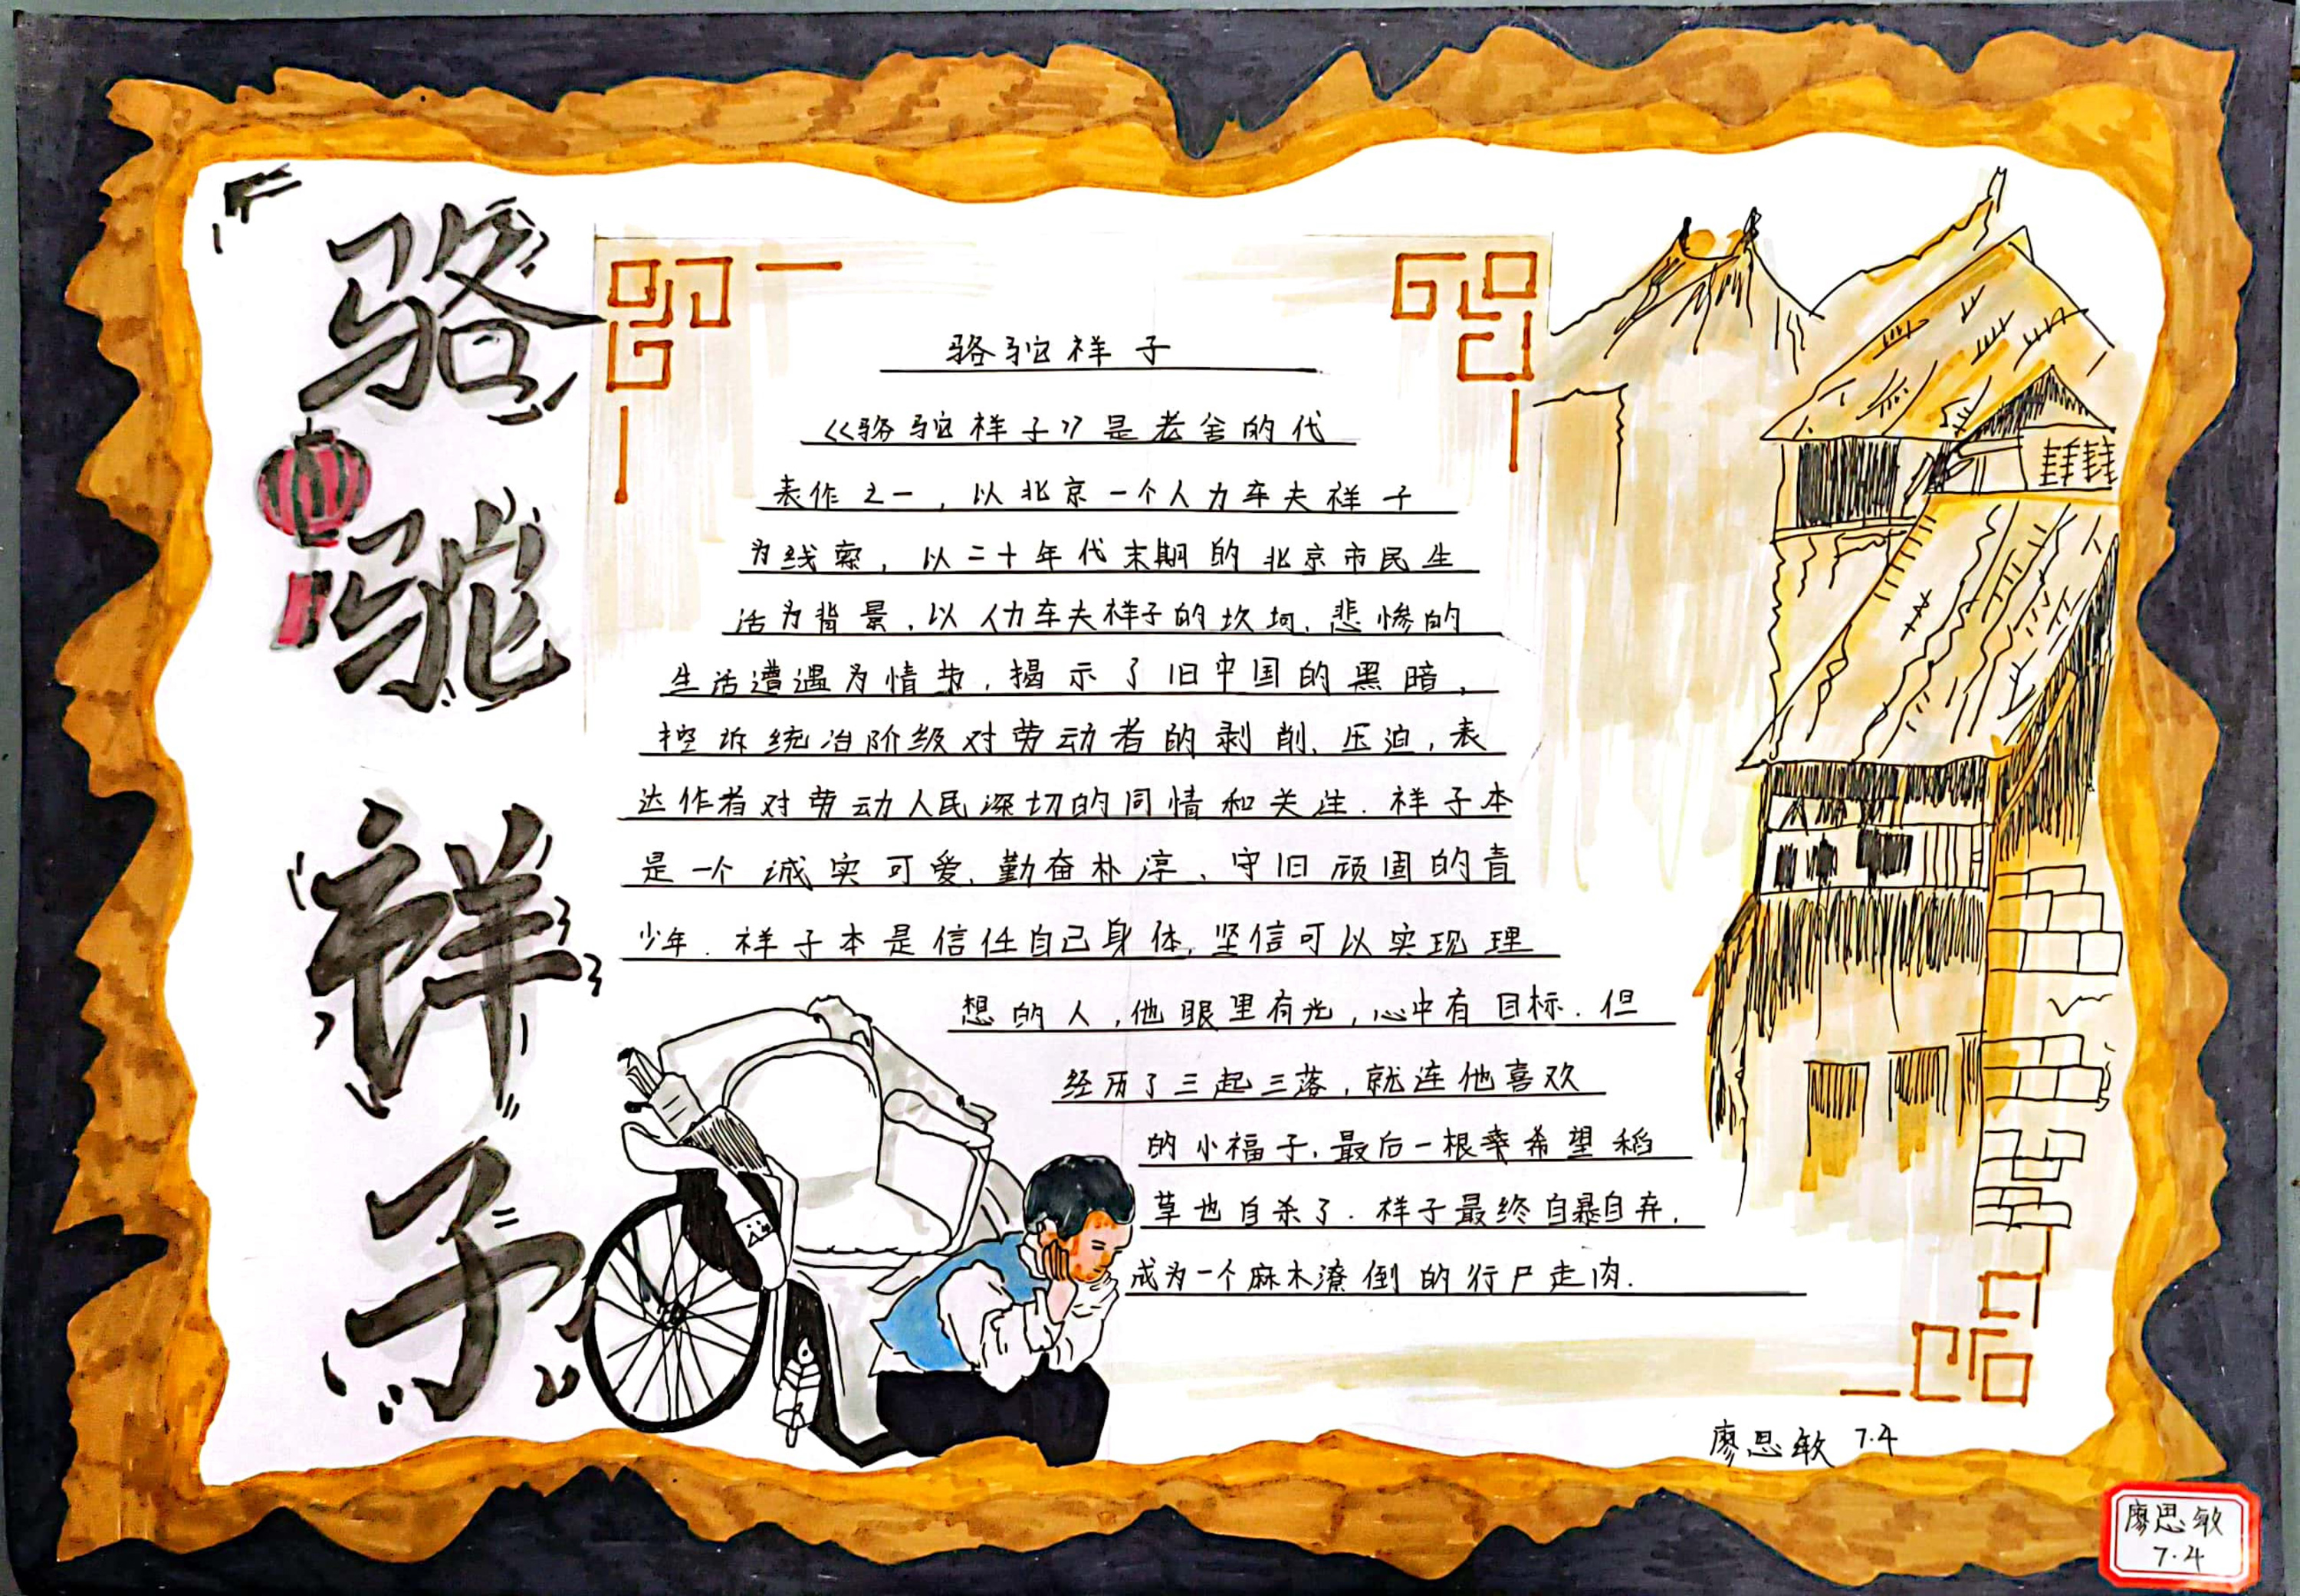 骆驼祥子
骆驼祥子
《骆驼祥子》是老舍的代
表作之一，以北京一个人力车夫祥子
为线索，以二十年代末期的北京市民生
活为背景，以人力车夫祥子的坎坷、悲惨的
生活遭遇为情节，揭示了旧中国的黑暗，
控诉统治阶级对劳动者的剥削、压迫，表
达作者对劳动人民深切的同情和关注．祥子本
是一个诚实可爱、勤奋朴淳、守旧顽固的青
少年．祥子本是信任自己身体，坚信可以实现理
想的人，他眼里有光，心中有目标．但
经历了三起三落，就连他喜欢
的小福子，最后一根希望稻
草也自杀了．祥子最终自暴自弃，
成为一个麻木潦倒的行尸走肉．
廖思敏 7.4
廖思敏
7.4